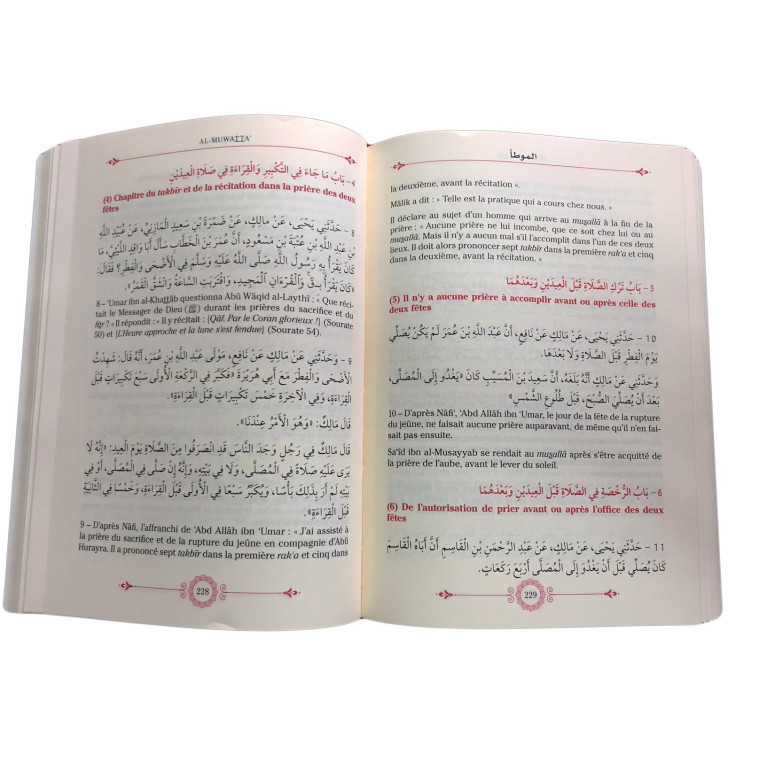 AL-MUWAṬṬA'
4– بَابُ مَا جَاءَ فِي التَّكْبِيرِ وَالْقِرَاءَةِ فِي صَلَاةِ الْعِيدَيْنِ
(4) Chapitre du takbîr et de la récitation dans la prière des deux
fêtes
8 – حَدَّثَنِي يَحْيَى، عَنْ مَالِكٍ، عَنْ ضَمْرَةَ بْنِ سَعِيدٍ الْمَازِنِيِّ، عَنْ عُبَيْدِ اللَّهِ
بْنِ عَبْدِ اللَّهِ بْنِ عُتْبَةَ بْنِ مَسْعُودٍ، أَنَّ عُمَرَ بْنَ الْخَطَّابِ سَأَلَ أَبَا وَاقِدٍ اللَّيْثِيَّ، مَا
كَانَ يَقْرَأُ بِهِ رَسُولُ اللَّهِ صَلَّى اللَّهُ عَلَيْهِ وَسَلَّمَ فِي الْأَضْحَى وَالْفِطْرِ؟ فَقَالَ:
كَانَ يَقْرَأُ بِـ﴿قَ وَالْقُرْءَانِ الْمَجِيدِ﴾، وَ﴿اقْتَرَبَتِ السَّاعَةُ وَانْشَقَّ الْقَمَرُ﴾.
8 – 'Umar ibn al-Khaṭṭâb questionna Abû Wâqid al-Laythî : « Que réci-
tait le Messager de Dieu (ﷺ) durant les prières du sacrifice et du
fiṭr ? » Il répondit : « Il y récitait : [Qâf. Par le Coran glorieux !] (Sourate
50) et [L'Heure approche et la lune s'est fendue] (Sourate 54).
9 – وَحَدَّثَنِي عَنْ مَالِكٍ عَنْ نَافِعٍ، مَوْلَى عَبْدِ اللَّهِ بْنِ عُمَرَ، أَنَّهُ قَالَ: شَهِدْتُ
الْأَضْحَى وَالْفِطْرَ مَعَ أَبِي هُرَيْرَةَ «فَكَبَّرَ فِي الرَّكْعَةِ الْأُولَى سَبْعَ تَكْبِيرَاتٍ قَبْلَ
الْقِرَاءَةِ، وَفِي الْآخِرَةِ خَمْسَ تَكْبِيرَاتٍ قَبْلَ الْقِرَاءَةِ».
قَالَ مَالِكٌ: «وَهُوَ الْأَمْرُ عِنْدَنَا».
قَالَ مَالِكٌ فِي رَجُلٍ وَجَدَ النَّاسَ قَدِ انْصَرَفُوا مِنَ الصَّلَاةِ يَوْمَ الْعِيدِ: «إِنَّهُ لَا
يَرَى عَلَيْهِ صَلَاةً فِي الْمُصَلَّى، وَلَا فِي بَيْتِهِ، وَإِنَّهُ إِنْ صَلَّى فِي الْمُصَلَّى، أَوْ فِي
بَيْتِهِ لَمْ أَرَ بِذَلِكَ بَأْسًا، وَيُكَبِّرُ سَبْعًا فِي الْأُولَى قَبْلَ الْقِرَاءَةِ، وَخَمْسًا فِي الثَّانِيَةِ
قَبْلَ الْقِرَاءَةِ».
9 – D'après Nâfi, l'affranchi de 'Abd Allâh ibn 'Umar : « J'ai assisté à
la prière du sacrifice et de la rupture du jeûne en compagnie d'Abû
Hurayra. Il a prononcé sept takbîr dans la première rak'a et cinq dans
228
الموطأ
la deuxième, avant la récitation ».
Mâlik a dit : « Telle est la pratique qui a cours chez nous. »
Il déclare au sujet d'un homme qui arrive au muṣallâ à la fin de la
prière : « Aucune prière ne lui incombe, que ce soit chez lui ou au
muṣallâ. Mais il n'y a aucun mal s'il l'accomplit dans l'un de ces deux
lieux. Il doit alors prononcer sept takbîr dans la première rak'a et cinq
dans la deuxième, avant la récitation. »
5– بَابُ تَرْكِ الصَّلَاةِ قَبْلَ الْعِيدَيْنِ وَبَعْدَهُمَا
(5) Il n'y a aucune prière à accomplir avant ou après celle des
deux fêtes
10 – حَدَّثَنِي يَحْيَى، عَنْ مَالِكٍ عَنْ نَافِعٍ، أَنَّ عَبْدَ اللَّهِ بْنَ عُمَرَ لَمْ يَكُنْ يُصَلِّي
يَوْمَ الْفِطْرِ قَبْلَ الصَّلَاةِ وَلَا بَعْدَهَا.
وَحَدَّثَنِي عَنْ مَالِكٍ أَنَّهُ بَلَغَهُ، أَنَّ سَعِيدَ بْنَ الْمُسَيَّبِ كَانَ «يَغْدُو إِلَى الْمُصَلَّى،
بَعْدَ أَنْ يُصَلِّيَ الصُّبْحَ، قَبْلَ طُلُوعِ الشَّمْسِ»
10 – D'après Nâfi', 'Abd Allâh ibn 'Umar, le jour de la fête de la rupture
du jeûne, ne faisait aucune prière auparavant, de même qu'il n'en fai-
sait pas ensuite.
Sa'îd ibn al-Musayyab se rendait au muṣallâ après s'être acquitté de
la prière de l'aube, avant le lever du soleil.
6– بَابُ الرُّخْصَةِ فِي الصَّلَاةِ قَبْلَ الْعِيدَيْنِ وَبَعْدَهُمَا
(6) De l'autorisation de prier avant ou après l'office des deux
fêtes
11 – حَدَّثَنِي يَحْيَى، عَنْ مَالِكٍ، عَنْ عَبْدِ الرَّحْمَنِ بْنِ الْقَاسِمِ أَنَّ أَبَاهُ الْقَاسِمَ
كَانَ يُصَلِّي قَبْلَ أَنْ يَغْدُوَ إِلَى الْمُصَلَّى أَرْبَعَ رَكَعَاتٍ.
229